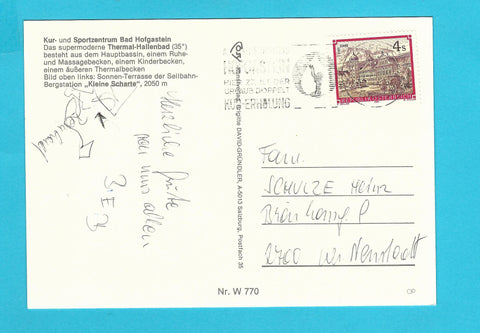 Kur- und Sportzentrum Bad Hofgastein
Das supermoderne Thermal-Hallenbad (35°)
besteht aus dem Hauptbassin, einem Ruhe-
und Massagebecken, einem Kinderbecken,
einem äußeren Thermalbecken
Bild oben links: Sonnen-Terrasse der Seilbahn-
Bergstation „Kleine Scharte“, 2050 m
Herzliche Grüße
von uns allen
Brigitte DAVID-GRÜNDLER, A-5013 Salzburg, Postfach 35
HOFGASTEIN
HIER ZÄHLT DER
URLAUB DOPPELT
KUR+ERHOLUNG
4 s
REPUBLIK ÖSTERREICH
Fam.
SCHULZE Heinz
2700 Wr. Neustadt
Nr. W 770